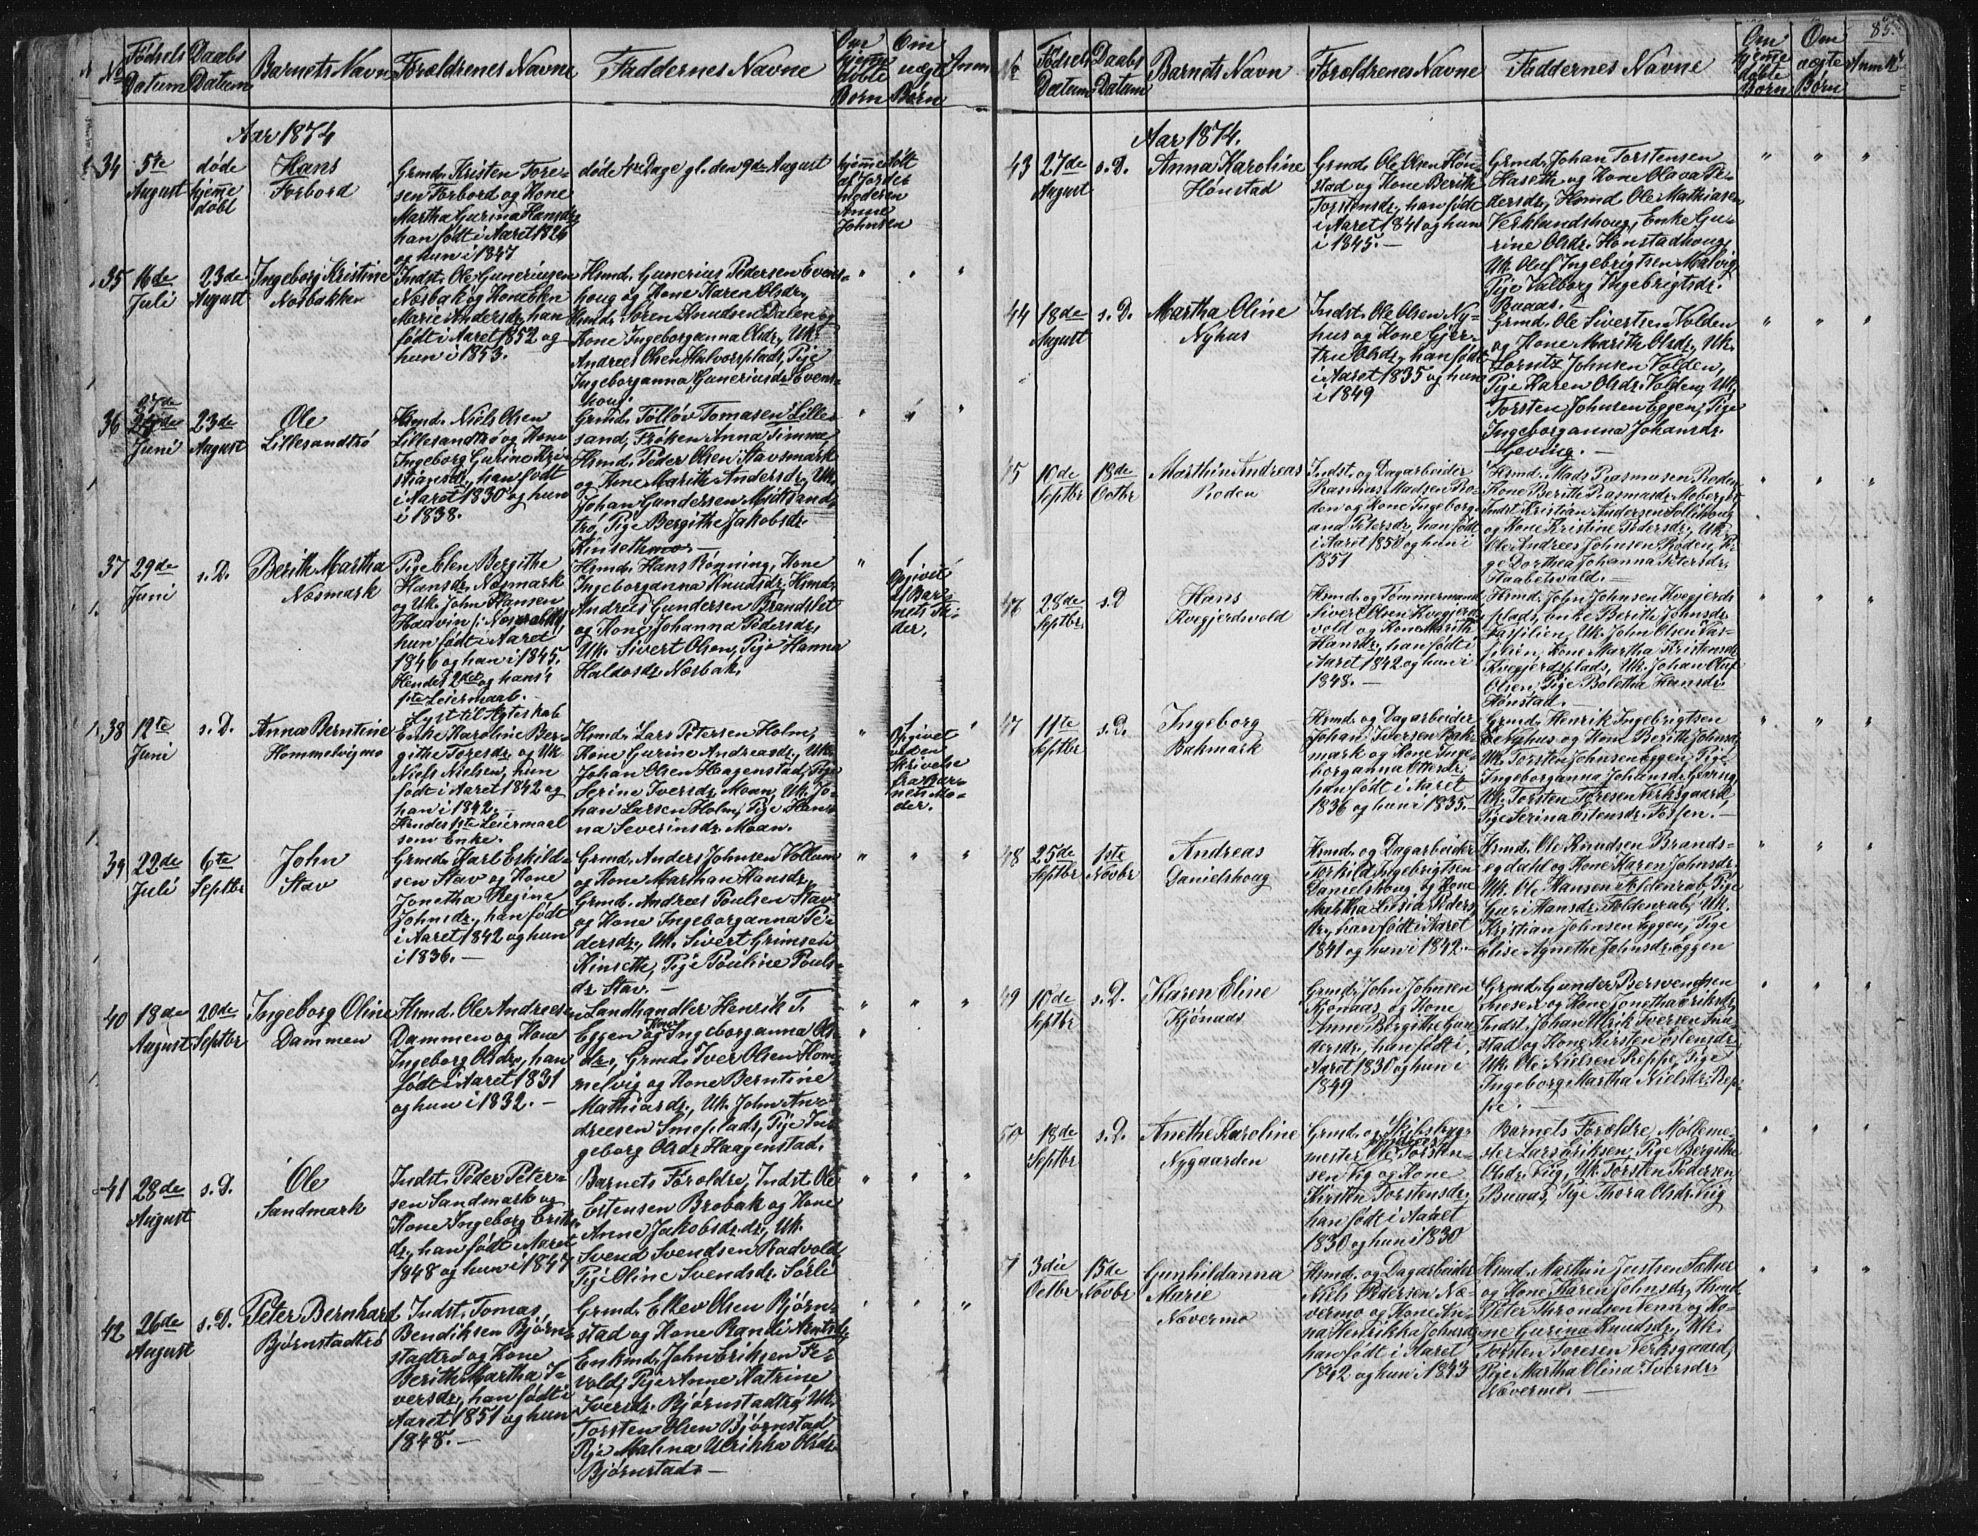 85.
No Fødsels Datum Daabs Datum Barnets Navn Forældrenes Navne Faddernes Navne Om hjemmedøbte Børn Om uægte Børn Anm
Aar 1874
34 5te August døde hjemmedøbt
Hans
Forbord
Grmd. Kristen Tore-
sen Forbord og Kone
Martha Gurina Hansdr.
han født i Aaret 1826
og hun i 1847
døde 4re Dage gl. den 9de August
hjemmedøbt
af Jorde-
moderen
Anne
Johnsen
35 16de Juli 23de August
Ingeborg Kristine
Næsbakken
Indst. Ole Guneriusen
Næsbak og Kone Elen
Marie Andersdr., han
født i Aaret 1852 og
hun i 1853.
Hsmd. Gunerius Pedersen Evens-
houg og Kone Karen Olsdr.,
Hsmd. Søren Knudsen Dalen og
Kone Ingeborganna Olsdr., Uk.
Andreas Olsen Halvorsplads, Pige
Ingeborganna Guneriusdr. Evens-
houg.
36 27de Juni 23de August
Ole
Lillesandtrø
Hsmd. Niels Olsen
Lillesandtrø og Kone
Ingeborg Gurine Kri-
stiansdr., han født
i Aaret 1830 og hun
i 1838.
Grmd. Folløv Tomasen Lille-
sand, Frøken Anna Timme
Hsmd. Peder Olsen Stavsmark
og Kone Marith Andersdr., Uk.
Johan Gundersen Midtsand-
trø, Pige Bergithe Jakobsdr.
Kinsethmo. —
37 29de Juni s. D.
Berith Martha
Næsmark
Pige Elen Bergithe
Hansdr. Næsmark
og Uk. John Hansen
Haavin
hun født i Aaret
1846 og han i 1845.
Hendes 2det og hans
1ste Leiermaal. —
Hsmd. Hans Rønning, Kone
Ingeborganna Knudsdr., Hsmd.
Andreas Gundersen Brandslet
og Kone Johanna Pedersdr.,
Uk. Sivert Olsen, Pige Hanna
Haldosdr. Næsbak.
1
Opgivet
af Bar-
nets Mo-
der.
38 12te Juni s. D.
Anna Berntine
Hommelvigmo
Lyst til Ægteskab
Enke Karoline Ber-
githe Toresdr. og Uk.
Niels Nielsen, hun
født i Aaret 1842 og
han i 1842. —
Hendes 1ste Leiermaal
som Enke.
Hsmd. Lars Petersen Holm,
Kone Gurine Andreasdr., Uk.
Johan Olsen Haagenstad, Pige
Serine Iversdr. Moan, Uk. Jo-
han Larsen Holm, Pige Han-
na Severinsdr. Moan.
Opgivet
ved en
Skrivelse
fra Bar-
nets Mo-
der.
39 22de Juli 6te Septbr
John
Stav
Grmd. Karl Eskild-
sen Stav og Kone
Jonetha Regine
Johnsdr., han født
i Aaret 1842 og hun
i 1836. —
Grmd. Anders Johnsen Vollum
og Kone Marthan Hansdr.,
Grmd. Andreas Poulsen Stav
og Kone Ingeborganna Pe-
dersdr., Uk. Sivert Grimsen
Kinseth, Pige Pouline Pouls-
dr. Stav. —
40 18de August 20de Septbr
Ingeborg Oline
Dammen
Hsmd. Ole Andreasen
Dammen og Kone
Ingeborg Olsdr., han
født i Aaret 1831
og hun i 1832. —
Landhandler Henrik T.
Eggen og Kone Ingeborganna Ols-
dr., Grmd. Iver Olsen Hom-
melvig og Kone Berntine
Mathiasdr., Uk. John An-
dreesen Smoplads, Pige In-
geborg Olsdr. Haagenstad.
41 28de August s. D.
Ole
Sandmark
Indst. Peder Peter-
sen Sandmark og
Kone Ingeborg Eriks-
dr., han født i Aaret
1848 og hun i 1847
Barnets Forældre, Indst. Ole
Estensen Brobak og Kone
Anne Jakobsdr., Uk.
Svend Svendsen Rødvold
Pige Oline Svendsdr. Sørli
42 26de August s. D.
Peter Bernhard
Bjørnstadtrø
Indst. Tomas
Bendiksen Bjørn-
stadtrø og Kone
Berith Martha I-
versdr., han født i
Aaret 1851 og hun
1848. —
Grmd. Ellev Olsen Bjørn-
stad og Kone Randi Arntsdr.
Enkmd. John Eriksen Fe-
vold, Pige Anne Katrine
Iversdr. Bjørnstadtrø, Uk.
Torsten Olsen Bjørnstad
Pige Malina Ulrikka Olsdr.
Bjørnstad. —
No Fødsels Datum Daabs Datum Barnets Navn Forældrenes Navne Faddernes Navne Om hjemmedøbte Børn Om uægte Børn Anmk
Aar 1874.
43 27de August s. D.
Anna Karoline
Hønstad
Grmd. Ole Olsen Høn-
stad og Kone Berith
Torstensdr., han født
i Aaret 1841 og hun
i 1845. —
Grmd. Johan Torstensen
Haseth og Kone Olava Pe-
dersdr., Hsmd. Ole Mathiasen
Verklandshoug, Enke Gu-
rine Olsdr. Hønstadhoug,
Uk. Oluf Ingebrigtsen Malvig,
Pige Valborg Ingebrigtsdr.
Buaas.
44 18de August s. D.
Martha Oline
Nyhus
Indst. Ole Olsen Ny-
hus og Kone Gjer-
tru Olsdr., han født
i Aaret 1835 og hun
i 1849
Grmd. Ole Sivertsen Volden
og Kone Marith Olsdr., Uk.
Lorntz Johnsen Volden,
Pige Karen Olsdr. Volden, Uk.
Torsten Johnsen Eggen, Pige
Ingeborganna Johansdr.
Geving. —
45 10de Septbr 18de Octbr
Marthin Andreas
Roden
Indst. og Dagarbeider
Rasmus Madsen Ro-
den og Kone Ingeborg-
ana Petersdr., han født
i Aaret 1850 og hun i
1851
Hsmd. Mads Rasmusen Roden,
Kone Berith Rasmusdr. Moberget
Indst. Kristian Andersen Solliehoug
og Kone Kristine Pedersdr., Uk.
Ole Andreas Johnsen Roden, Pi-
ge Dorthea Johanna Petersdr.
Staabetsvald. —
46 28de Septbr s. D
Hans
Kvegjerdsvold
Hsmd. og Tømmermand
Sivert Olsen Kvegjerds-
vold og Kone Marith
Hansdr., han født i
Aaret 1842 og hun i
1848. —
Hsmd. John Johnsen Kvegjerds-
plads, enke Berith Johnsdr.
Vasfilien, Uk. John Olsen Vas-
filien, Kone Martha Kristensdr.
Kvegjerdsplads, Uk. Johan Oluf
Olsen, Pige Boletha Hansdr.
Hønstad.
47 11te Septbr s. D.
Ingeborg
Bakmark
Hsmd. og Dagarbeider
Johan Iversen Bak-
mark og Kone Inge-
borganna Ottersdr.
han født i Aaret
1836 og hun i 1835. —
Grmd. Henrik Ingebrigtsen
Nyhus og Kone Berith Johnsdr.
Uk. Torsten Johnsen Eggen, Pige
Ingeborganna Johansdr. Geving,
Uk. Torsten Toresen Verksgaard,
Pige Serina Estensdr. Fossen. —
48 25de Septbr 1ste Novbr
Andreas
Danielshoug
Hsmd. og Dagarbeider
Torkild Ingebrigtsen
Danielshoug, og Kone
Martha Lovisa Peders-
dr., han født i Aaret
1841 og hun i 1842. —
Hsmd. Ole Knudsen Brands-
egdahl og Kone Karen Johnsdr.
Uk. Ole Hansen Foldenrab, Pige
Guri Hansdr. Foldenrab, Uk.
Kristian Johnsen Eggen, Pige
Elise Agnethe Johnsdr. Eggen
49 10de Septbr s. D.
Karen Eline
Kjønaas
Grmd. John Johnsen
Kjønaas og Kone
Anne Bergithe Gun-
dersdr., han født i
Aaret 1830 og hun i
1849
Grmd. Gunder Bersvendsen
og Kone Jonetha Eriksdr.
Indst. Johan Ulrik Iversen
stad og Kone Kirsten Estensdr.
Uk. Ole Nielsen Reppe, Pige
Ingeborg Martha Nielsdr. Rep-
pe. —
50 18de Septbr s. D.
Anethe Karoline
Nygaarden
Grmd. og Skibsbyg-
mester Ole Andreas Torsten-
sen Vig og Kone
Kirsten Torstensdr.
han født i Aaret
1830 og hun i 1830
Barnets Forældre, Mølleme-
ster Lars Eriksen, Pige Bergithe
Olsdr. Vig, Uk. Torsten Pedersen
Buaas, Pige Thora Olsdr. Vig
51 3die Octbr 15de Novbr
Gunhildanna
Marie
Nævermo
Hsmd. og Dagarbeider
Niels Pedersen Næ-
vermo og Kone An-
na Henrikka Johnsdr.
han født i Aaret
1842 og hun i 1843
Hsmd. Marthin Justsen Sæther
og Kone Karen Johnsdr., Hsmd.
Peter Throndsen Venn og Ko-
ne Gurina Knudsdr., Uk.
Torsten Toresen Verksgaard,
Pige Martha Olina Iversdr.
Nævermo. —